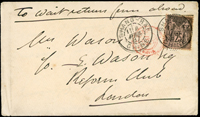 To wait return from abroad.
Mrs Wason
c/o E. Wason Esq
Reform Club
London